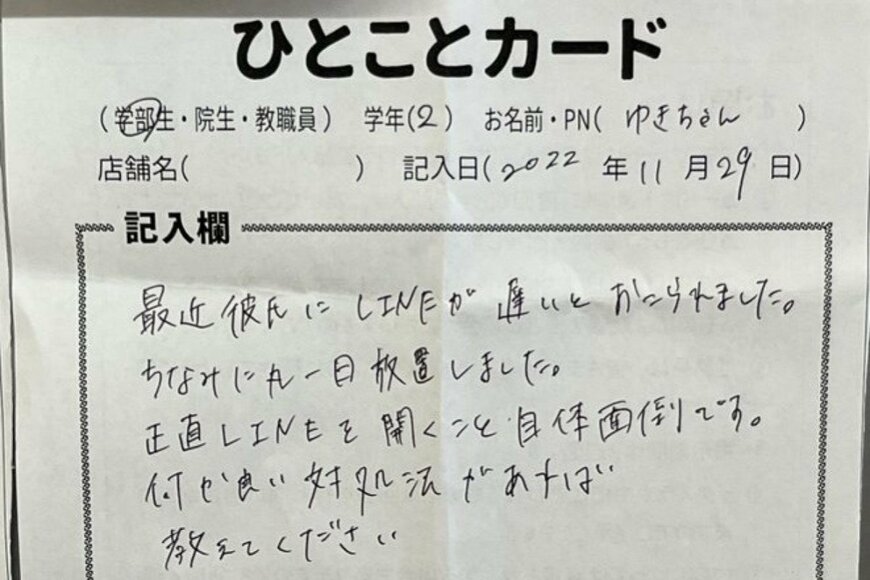 ひとことカード
(学部生・院生・教職員) 学年(2) お名前・PN(ゆきちゃん)
店舗名( ) 記入日(2022年11月29日)
記入欄
最近彼氏にLINEが遅いとおこられました。
ちなみに丸一日放置しました。
正直LINEを開くこと自体面倒です。
何か良い対処法があれば
教えてください